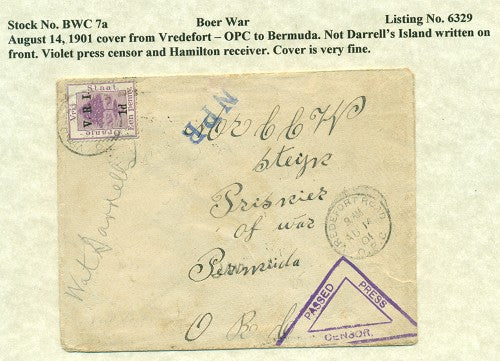 Stock No. BWC 7a Boer War Listing No. 6329
August 14, 1901 cover from Vredefort – OPC to Bermuda. Not Darrell's Island written on
front. Violet press censor and Hamilton receiver. Cover is very fine.
Vrij Staat
Oranje
V. R. I.
1d
N.P.B
Steyn
Prisnier
of war
Bermuda
O R C
Not Darrell's
VREDEFORT ROAD
AU 14
01
PASSED
PRESS
CENSOR.